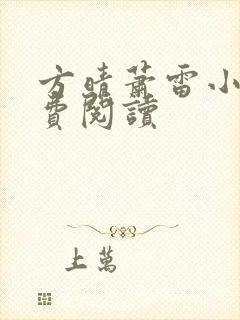 方晴蕭雷小
費閱讀
上萬